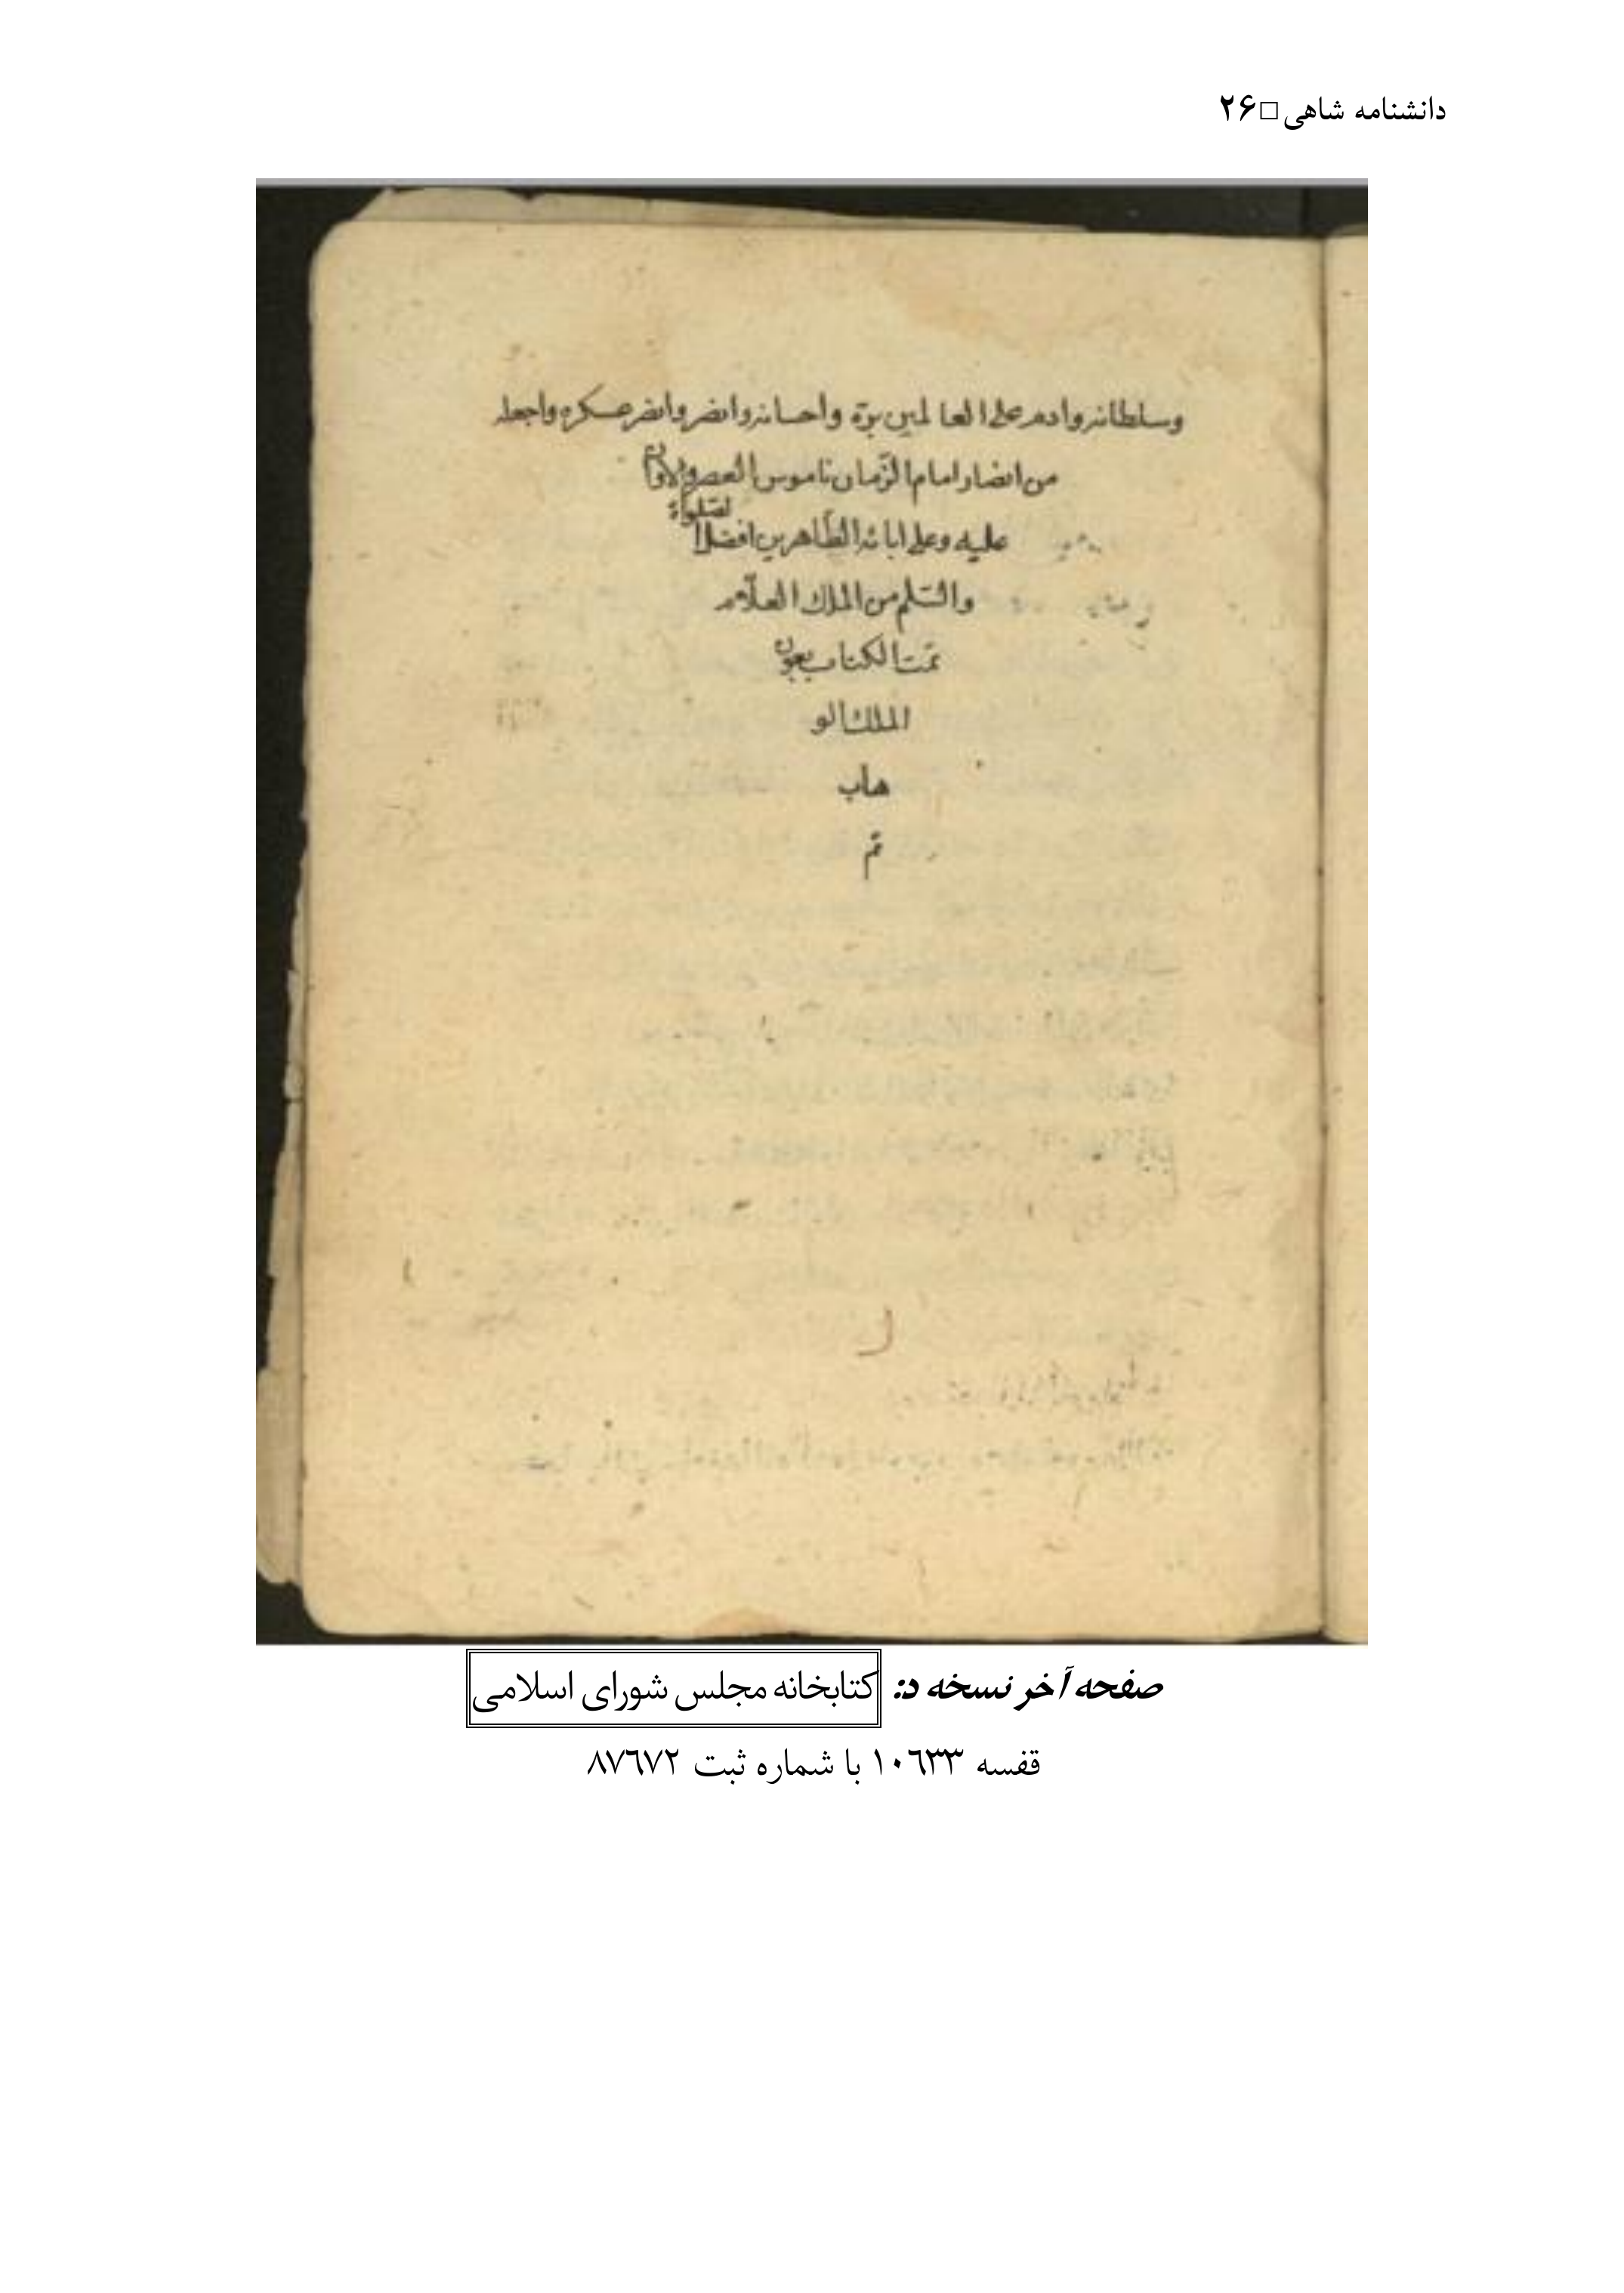 دانشنامه شاهی□۲۶
وسلطانه وادم على العالمين برّه واحسانه وانصر وانصر عسكره واجعله
من انصار امام الزّمان ناموس العصر والاوان
عليه وعلى ابائه الطّاهرين افضل الصّلوة
والسّلم من الملك العلّام
تمّت الكتاب بعون
الملك الو
هاب
تمّ
صفحه آخر نسخه د: کتابخانه مجلس شورای اسلامی
قفسه ۱۰٦۳۳ با شماره ثبت ۸۷٦۷۲